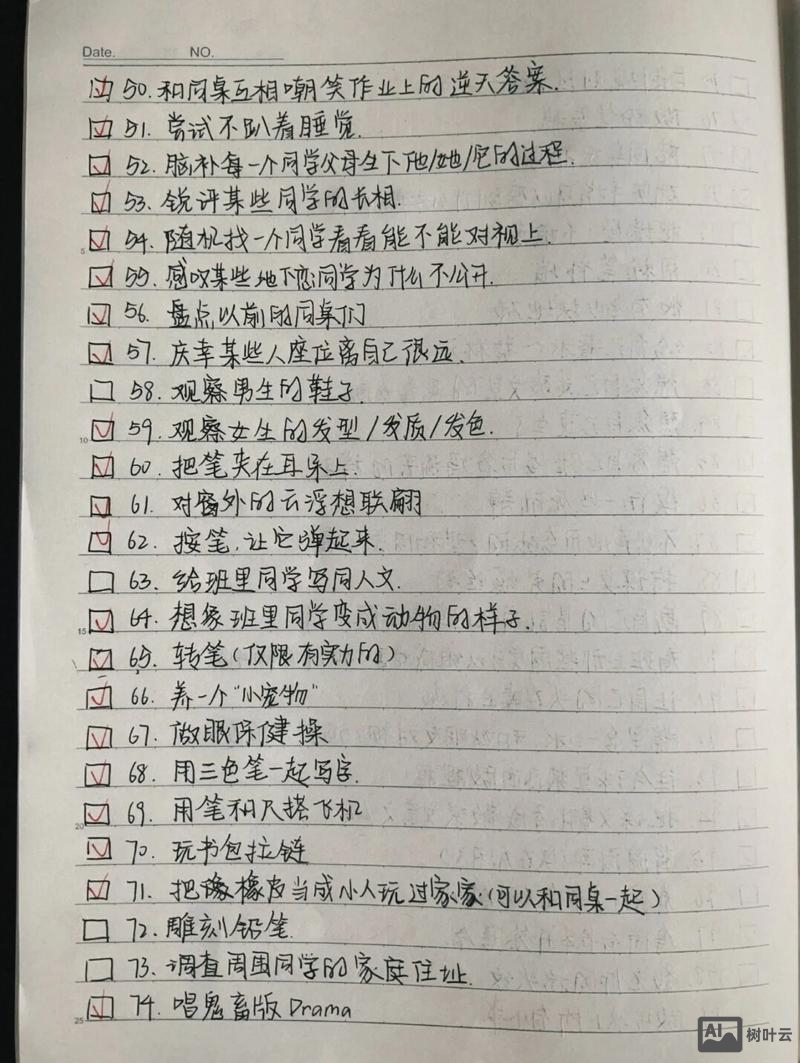 Date. NO.
50. 和同桌互相嘲笑作业上的逆天答案.
51. 尝试不趴着睡觉.
52. 脑补每一个同学父母生下他/她/它的过程.
53. 锐评某些同学的长相.
5
54. 随机找一个同学看看能不能对视上.
55. 感叹某些地下恋同学为什么不公开.
56. 盘点以前的同桌们
57. 庆幸某些人座位离自己很远.
58. 观察男生的鞋子.
10
59. 观察女生的发型/发质/发色.
60. 把笔夹在耳朵上.
61. 对窗外的云浮想联翩
62. 按笔,让它弹起来.
63. 给班里同学写同人文.
15
64. 想象班里同学变成动物的样子.
65. 转笔(仅限有实力的)
66. 养一个"小宠物"
67. 做眼保健操
68. 用三色笔一起写字.
20
69. 用笔和尺搭飞机
70. 玩书包拉链
71. 把橡橡皮当成小人玩过家家(可以和同桌一起)
72. 雕刻铅笔.
73. 调查周围同学的家庭住址.
25
74. 唱鬼畜版Drama
AI 树叶云